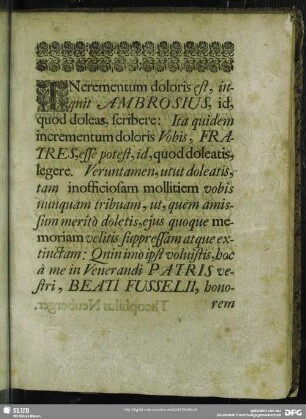 INcrementum doloris est, in-
quit AMBROSIUS, id,
quod doleas, scribere: Ita quidem
incrementum doloris Vobis, FRA-
TRES, esse potest, id, quod doleatis,
legere. Veruntamen, utut doleatis,
tam inofficiosam mollitiem vobis
nunquam tribuam, ut, quem amis-
sum meritò doletis, ejus quoque me-
moriam velitis suppressam atque ex-
tinctam: Quin imò ipsi voluistis, hoc
à me in Venerandi PATRIS ve-
stri, BEATI FUSSELII, hono-
rem
SLUB
DFG